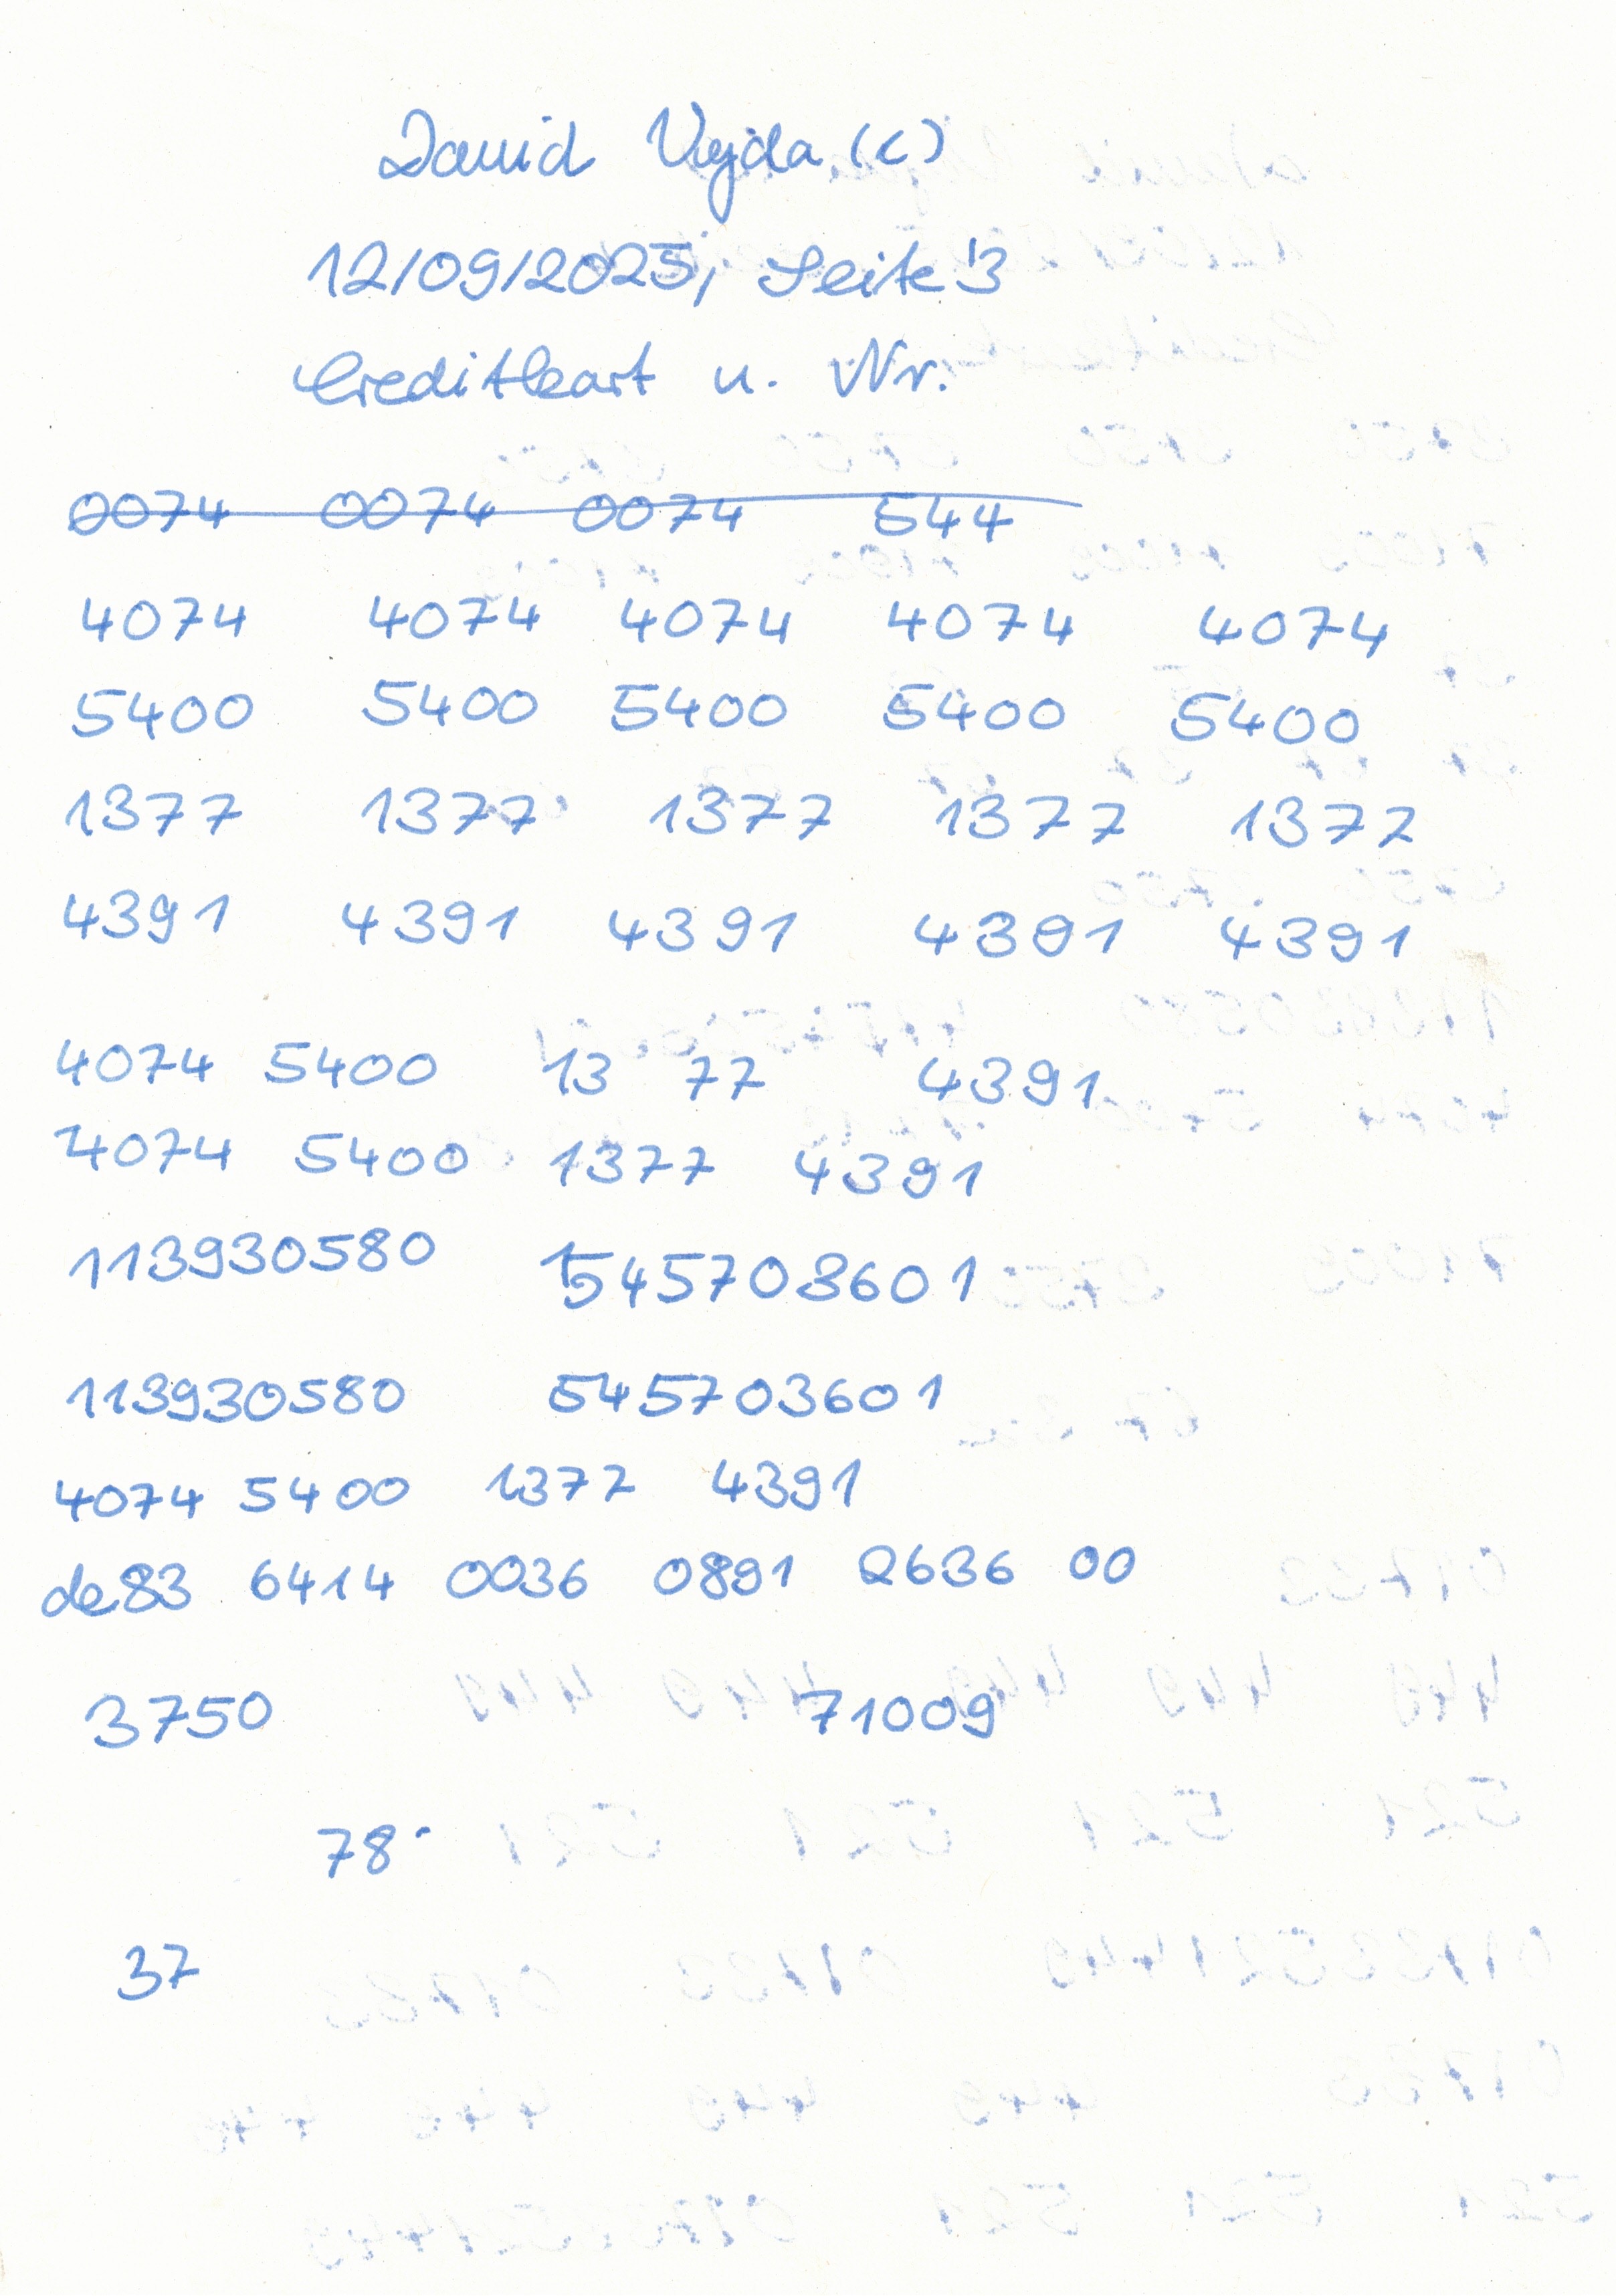 David Vajda (C)
12/09/2025, Seite 3
Creditkart u. Nr.
0074 0074 0074 544
4074 4074 4074 4074 4074
5400 5400 5400 5400 5400
1377 1377 1377 1377 1377
4391 4391 4391 4391 4391
4074 5400 13 77 4391
4074 5400 1377 4391
113930580 545703601
113930580 545703601
4074 5400 1377 4391
de83 6414 0036 0891 2636 00
3750 71009
78
37